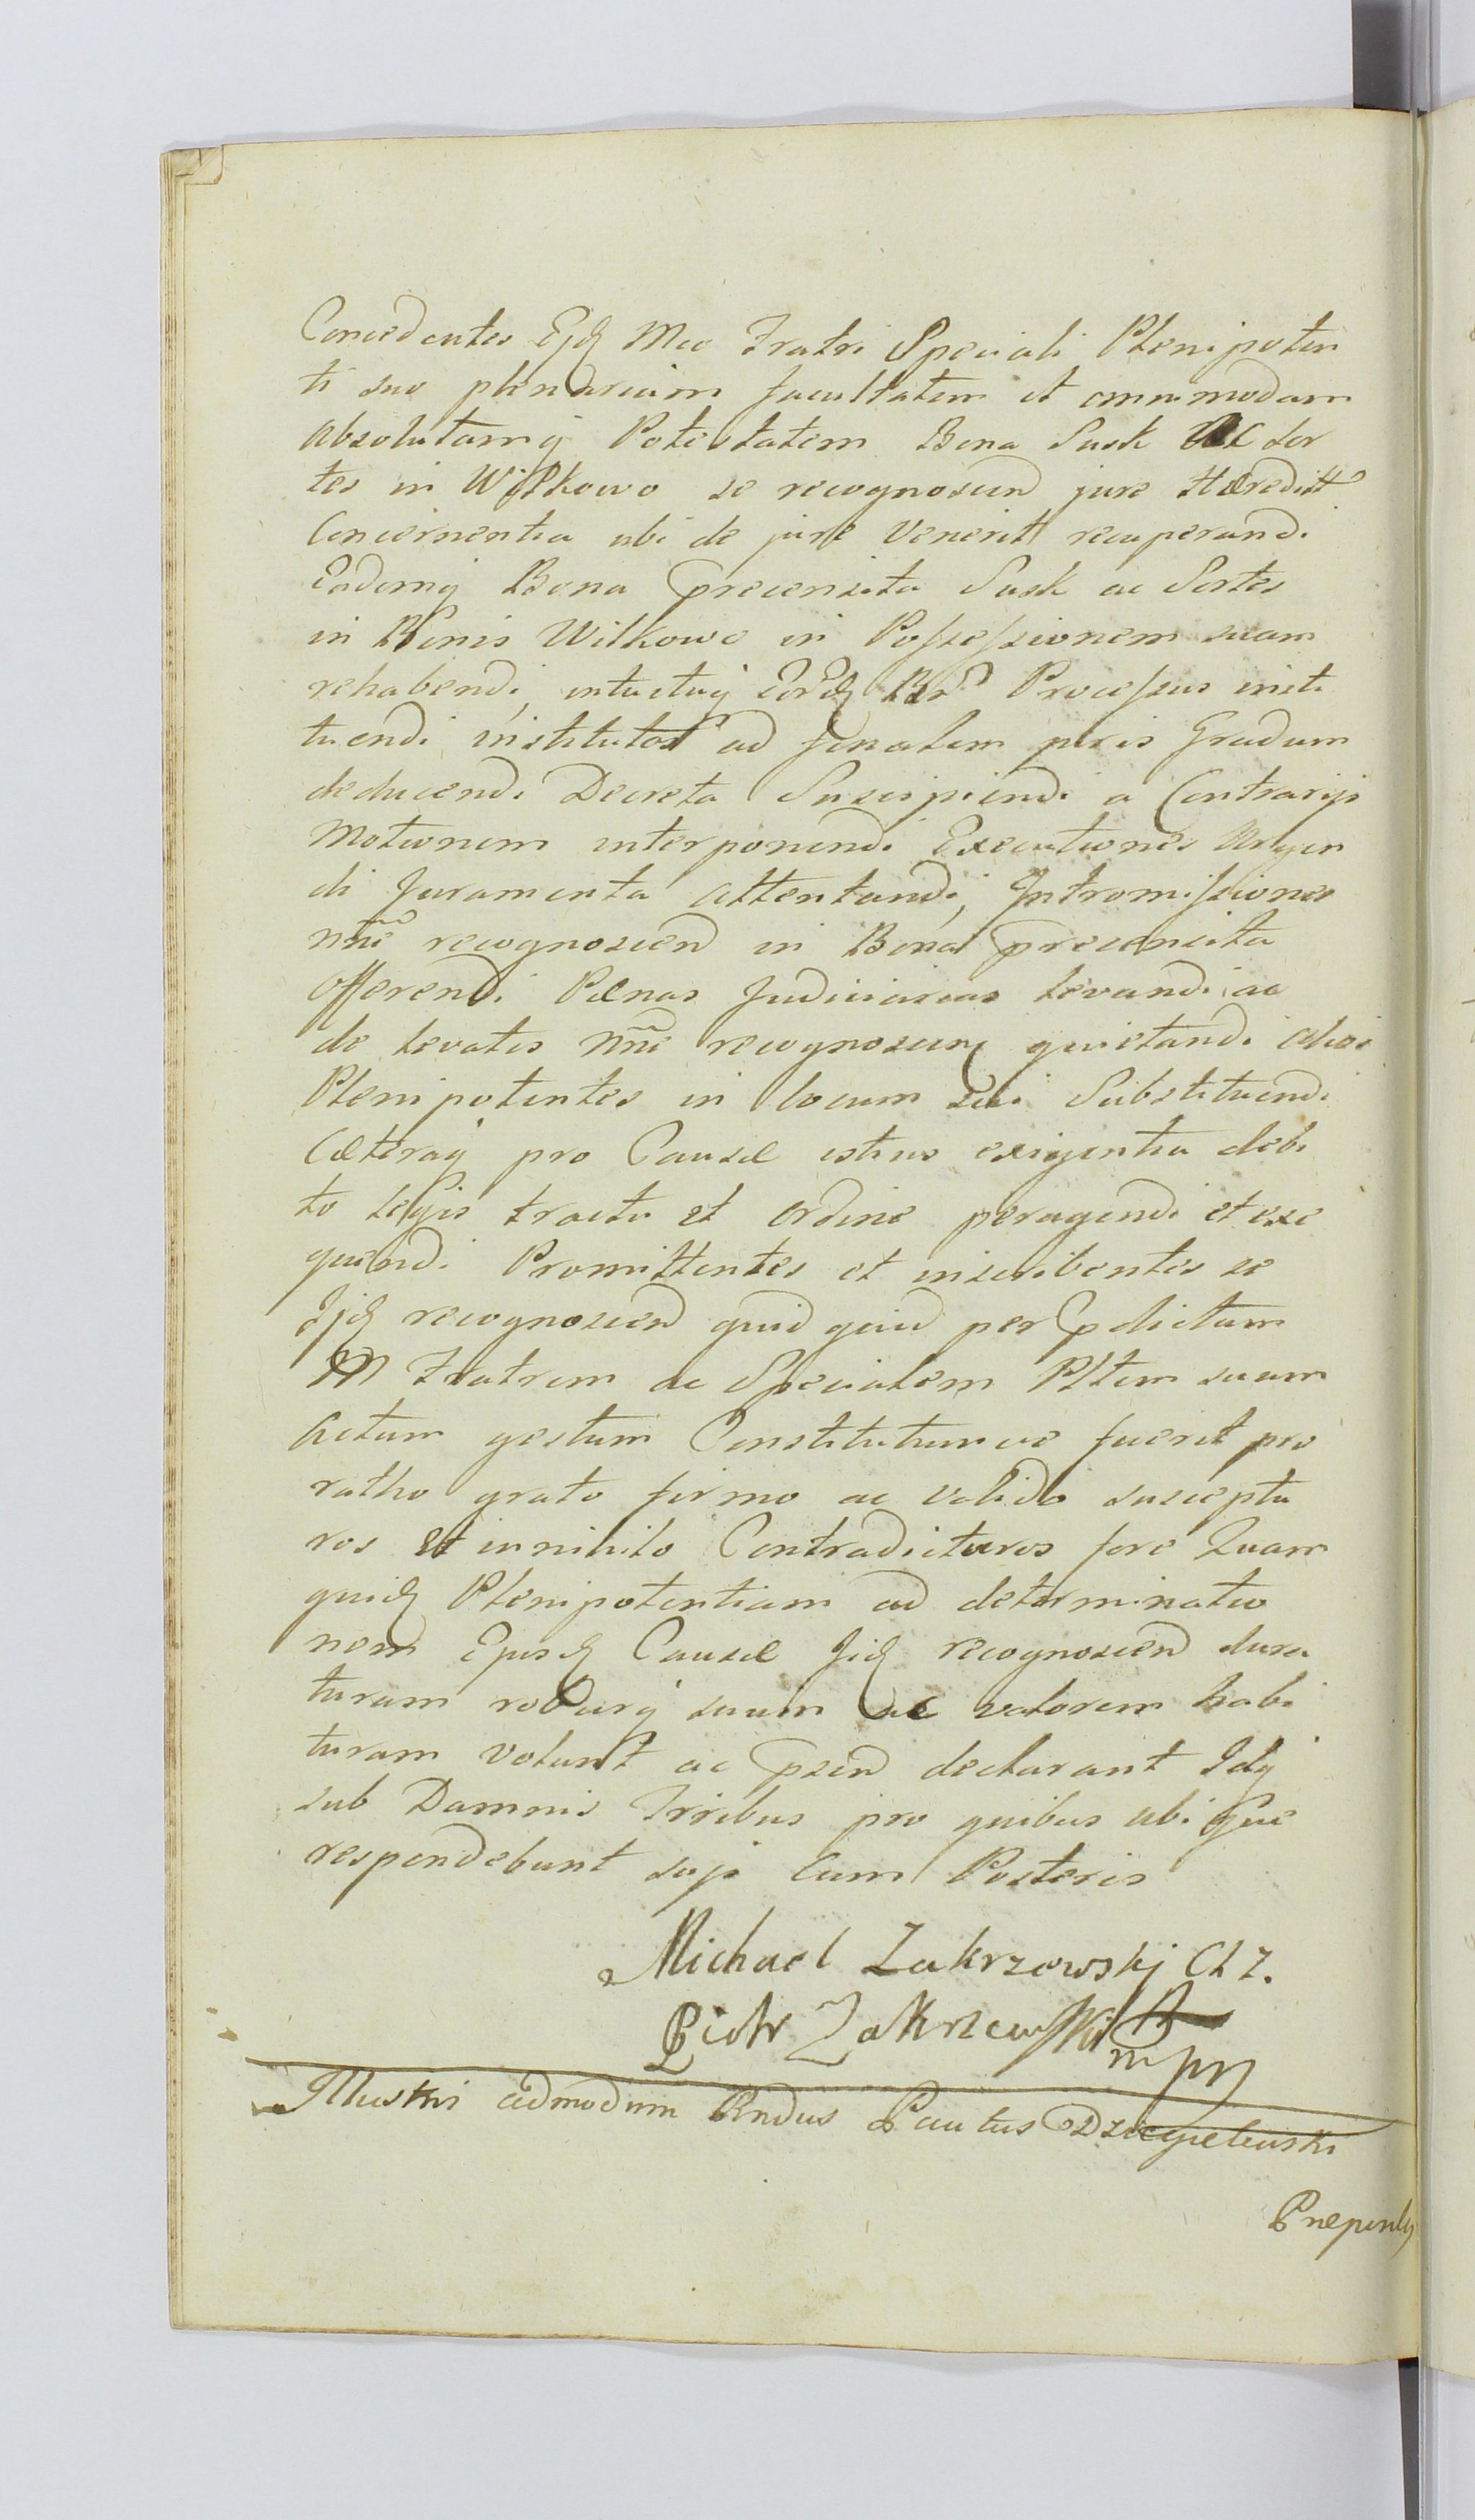 Concedentes Ejd Mco Fratri Speciali Plenipoten
ti suo plenariam facultatem et omnimodam
absolutamq Potestatem Bona Susk Ac Sor
tes in Wilkowo se recognoscen jure Hæreditt
Concernentia ubi de jure Venerit recuperandi
Eademq Bona precensita Susk ac Sortes
in Bonis Wilkowo in Possessionem suam
rehabendi, intuituq Eord Bn Processus insti
tuendi institutos ad finalem juris Gradum
deducendi Decreta Suscipiendi a Contrarijs
Motionem interponendi Executiones Urgen
di Juramenta attentandi, Intromissiones
nne recognoscen in Bona precensita
offerendi Pænas Judiciarias levandi ac
de levatis nne recognoscen quietandi alios
Plenipotentes in locum sui Substituendi
Cæteraq pro Causæ istius exigentia debi
to legis tractu et ordine peragendi et exe
quendi Promittentes et inscribentes se
Ijd recognoscen quid quid per pdictum
M Fratrem ac Specialem Pltem suum
actum gestum Constitutumve fuerit pro
ratho grato firmo ac valido susceptu
ros Et in nihilo Contradicturos fore Quam
quid Plenipotentiam ad determinatio
nem Ejusd Causæ Jid recognoscen dura
turam roburq suum ac valorem habi
turam volunt ac psen declarant Idq
sub Damnis Trribus pro quibus ubi que
respondebunt suji Cum Posteris
Michael Zakrzewskj Ch Z.
Piotr Zakrzewski
mpp
Illustris admodum Rndus Paulus Dziegielewski
Præposit